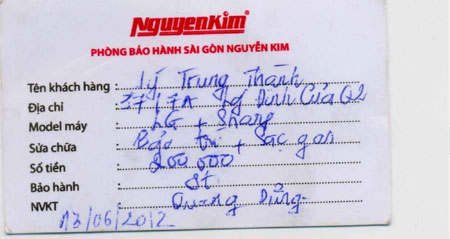 NguyenKim
PHÒNG BẢO HÀNH SÀI GÒN NGUYỄN KIM
Tên khách hàng : Lý Trung Thành
Địa chỉ : 37/7A Lg Đình Của Q2
Model máy : LG + Sharp
Sửa chữa : Bảo trì + Sạc gas
Số tiền : 200 000
Bảo hành : 8t
NVKT : Quang Dũng
13/06/2012